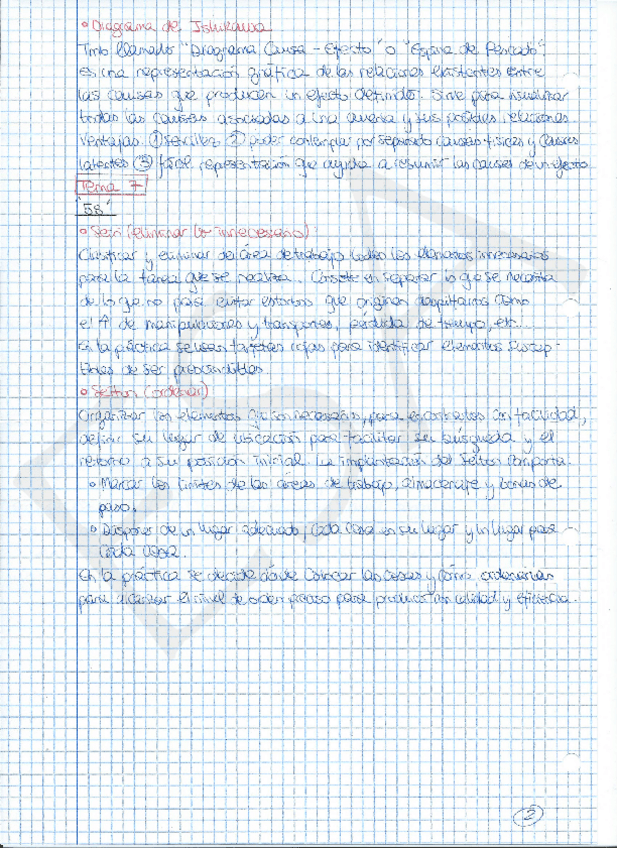 • Diagrama de Ishikawa
Tmb llamado "Diagrama Causa - Efecto" o "Espina de Pescado".
Es una representación gráfica de las relaciones existentes entre
las causas que producen un efecto definido. Sirve para visualizar
todas las causas asociadas a una avería y sus posibles relaciones.
Ventajas: ① sencillez ② poder contemplar por separado causas físicas y causas
latentes ③ fácil representación que ayuda a resumir las causas de un efecto
Tema 7
"5S"
• Seiri (eliminar lo innecesario):
Clasificar y eliminar del área de trabajo todos los elementos innecesarios
para la tarea que se realiza. Consiste en separar lo que se necesita
de lo que no para evitar estorbos que originen despilfarros como
el ↑ de manipulaciones y transportes, pérdida de tiempo, etc.
En la práctica se usan tarjetas rojas para identificar elementos suscep-
tibles de ser prescindibles.
• Seiton (ordenar)
Organizar los elementos que son necesarios, para encontrarlos con facilidad,
definir su lugar de ubicación para facilitar su búsqueda y el
retorno a su posición inicial. La implantación del Seiton comporta:
• Marcar los límites de las áreas de trabajo, almacenaje y zonas de
paso.
• Disponer de un lugar adecuado, cada cosa en su lugar y un lugar para
cada cosa.
En la práctica se decide dónde colocar las cosas y cómo ordenarlas
para alcanzar el nivel de orden preciso para producir con calidad y eficiencia.
②